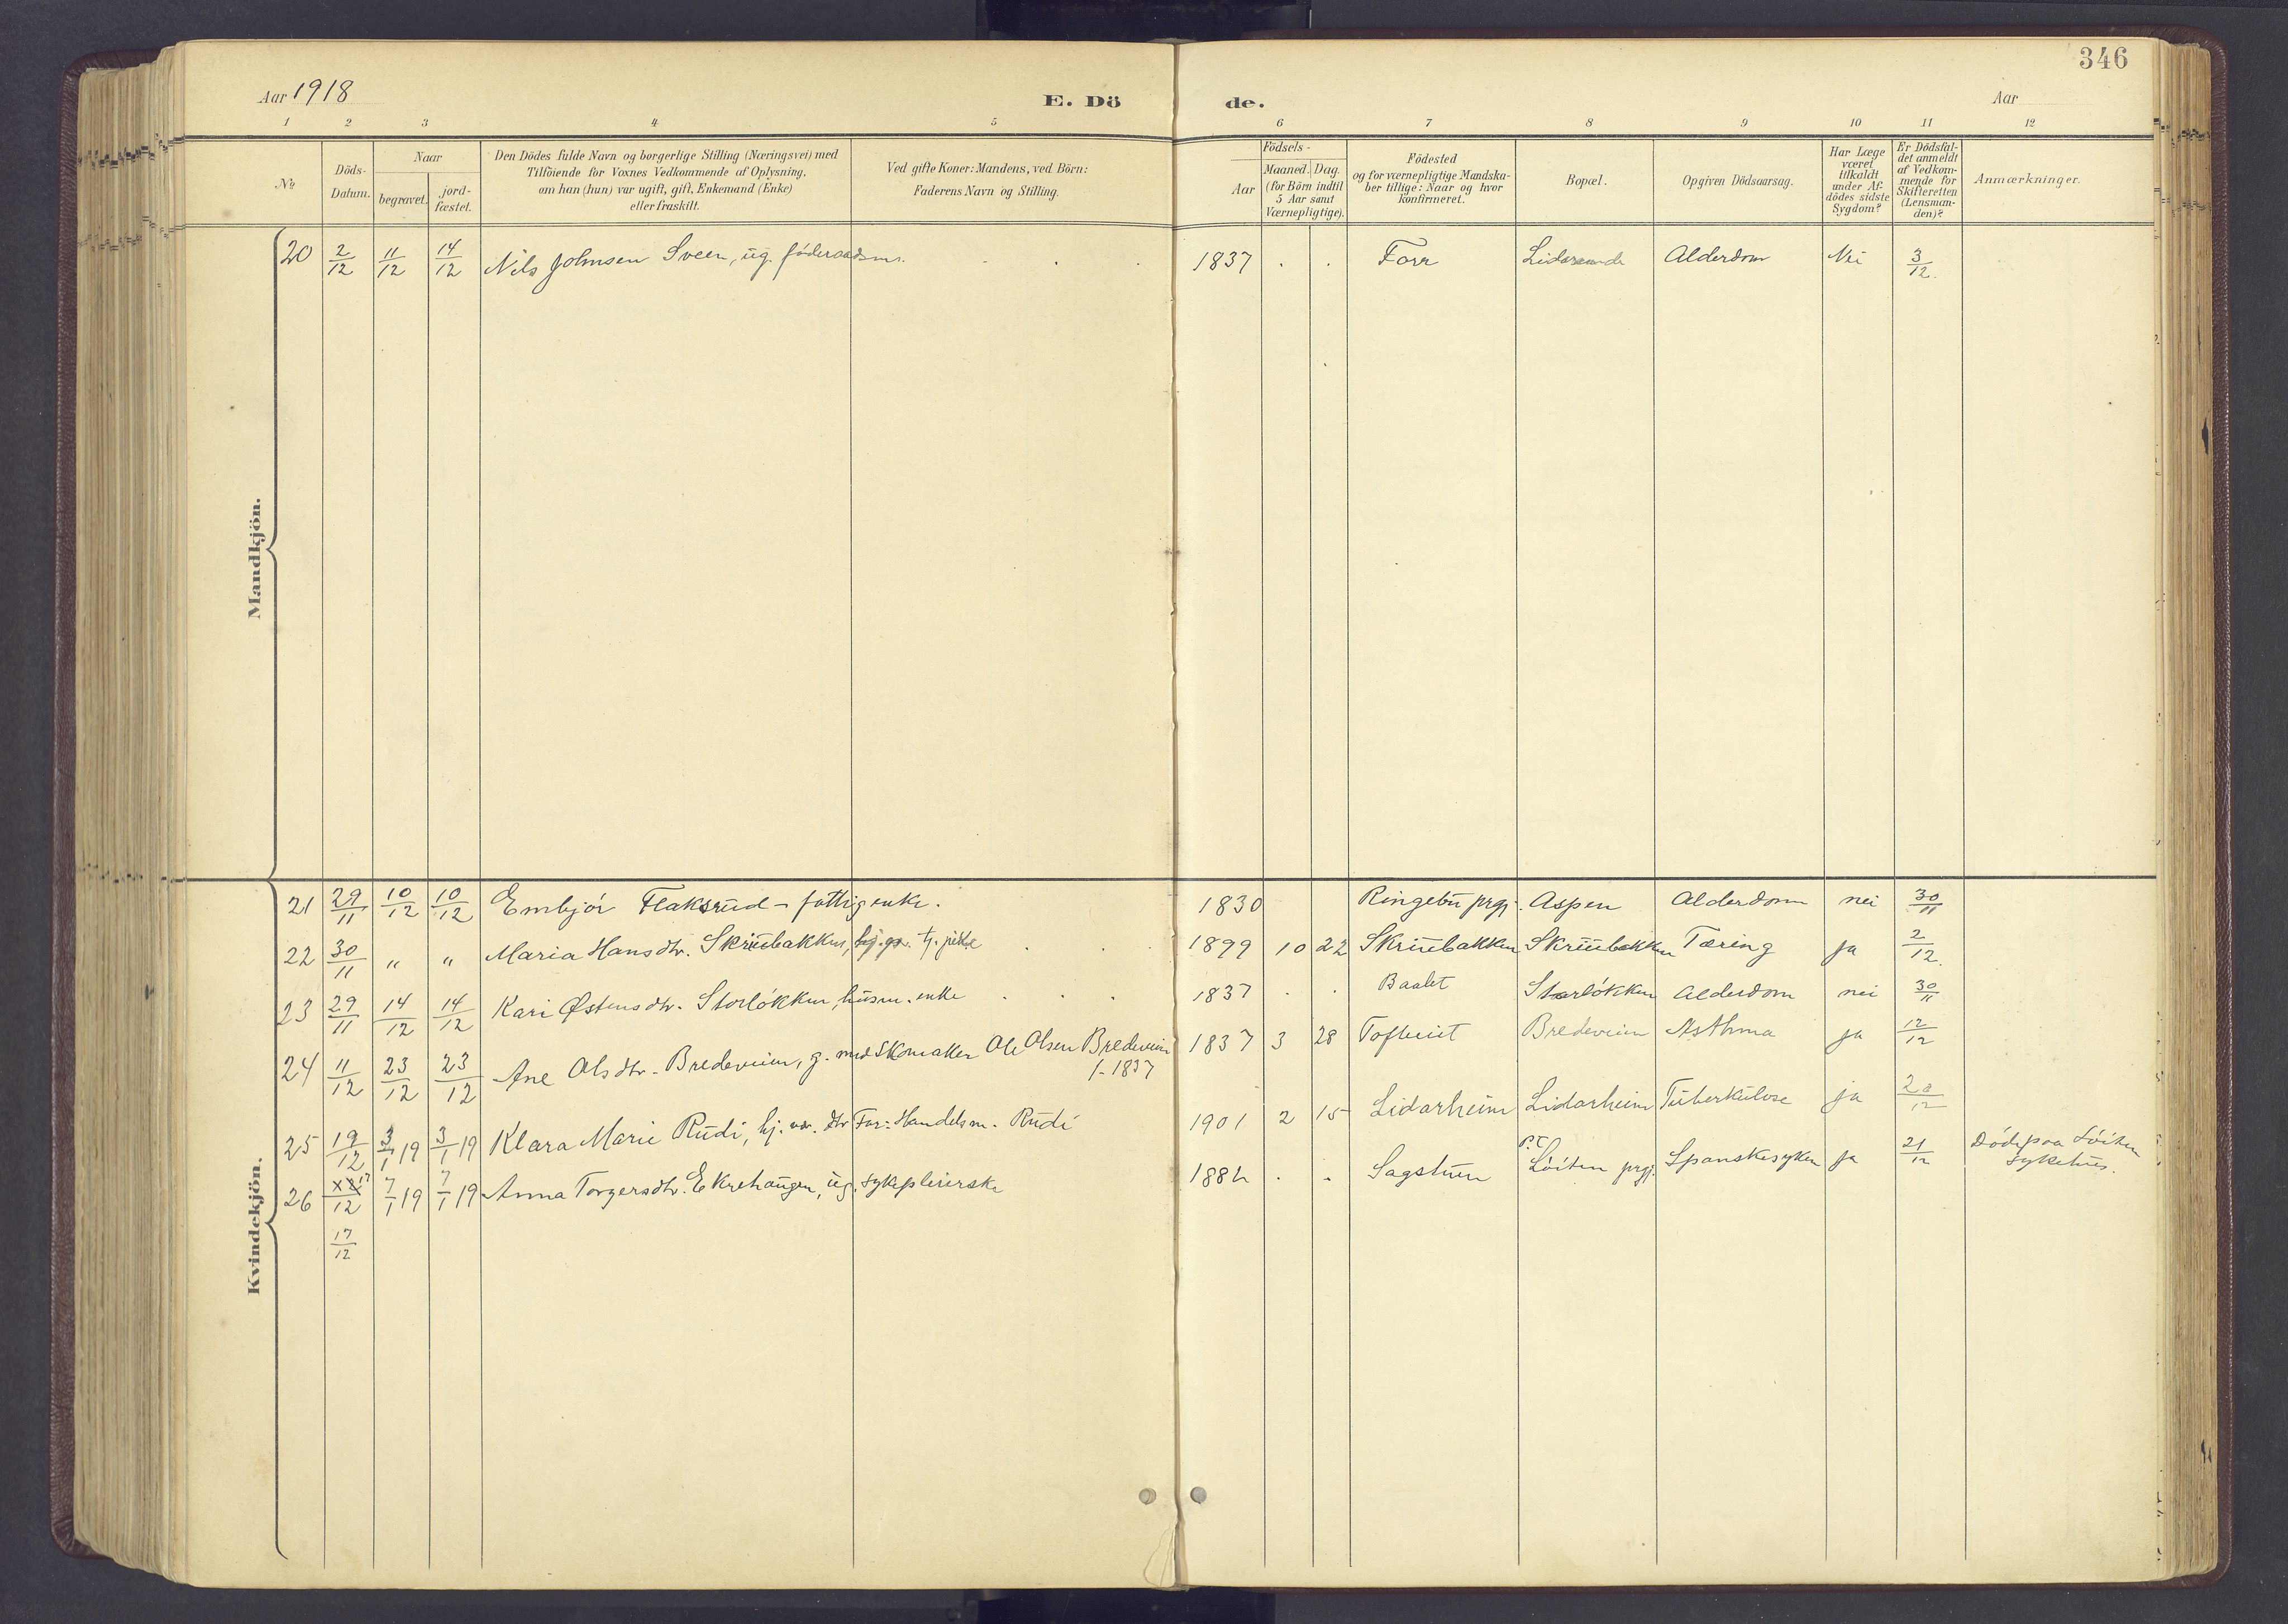 346
Aar 1918
E. Dö
de.
Aar
1 2 3 4 5 6 7 8 9 10 11 12
No
Döds-
Datum.
Naar
begravet.
jord-
fæstet.
Den Dödes fulde Navn og borgerlige Stilling (Næringsvei) med
Tilföiende for Voxnes Vedkommende af Oplysning,
om han (hun) var ugift, gift, Enkemand (Enke)
eller fraskilt.
Ved gifte Koner: Mandens, ved Börn:
Faderens Navn og Stilling.
Födsels-
Aar
Maaned. Dag.
(for Börn indtil
5 Aar samt
Værnepligtige).
Födested
og for værnepligtige Mandska-
ber tillige: Naar og hvor
konfirmeret.
Bopæl.
Opgiven Dödsaarsag.
Har Læge
været
tilkaldt
under Af-
dödes sidste
Sygdom?
Er Dödsfal-
det anmeldt
af Vedkom-
mende for
Skifteretten
(Lensman-
den)?
Anmærkninger.
Mandkjön.
20 2/12 11/12 14/12 Nils Johnsen Sveen, ug. föderaadsm. 1837 Forr Alderdom Nei 3/12.
Kvindekjön.
21 29/11 10/12 10/12 Embjör Flaksrud - fattigenke. 1830 Ringebu prgj. Aspen Alderdom nei 30/11
22 30/11 " " Maria Hansdtr. Skriubakken, tj. pike 1899 10 22 Skriubakken Skriubakken Tæring ja 2/12.
23 29/11 14/12 14/12 Kari Østensdtr. Storløkken, husm. enke 1837 Baalet Storløkken Alderdom nei 30/11
24 11/12 23/12 23/12 Ane Olsdtr. Bredeveien, g. med Skomaker Ole Olsen Bredeveien
f. 1837
1837 3 28 Bredeveien Asthma ja 12/12
25 19/12 3/1 19 3/1 19 Klara Marie Rudi, hj. vær. dtr Far: Handelsm. Rudi 1901 2 15 Lidarheim Lidarheim Tuberkulose ja 20/12
26 12 7/1 19 7/1 19 Anna Torgersdtr. Ekrehaugen, ug. sykepleierske 1882 Sagstuen p.t. Löiten prgj. Spanskesyken ja 21/12 Död paa Löiten
sykehus.
17/12